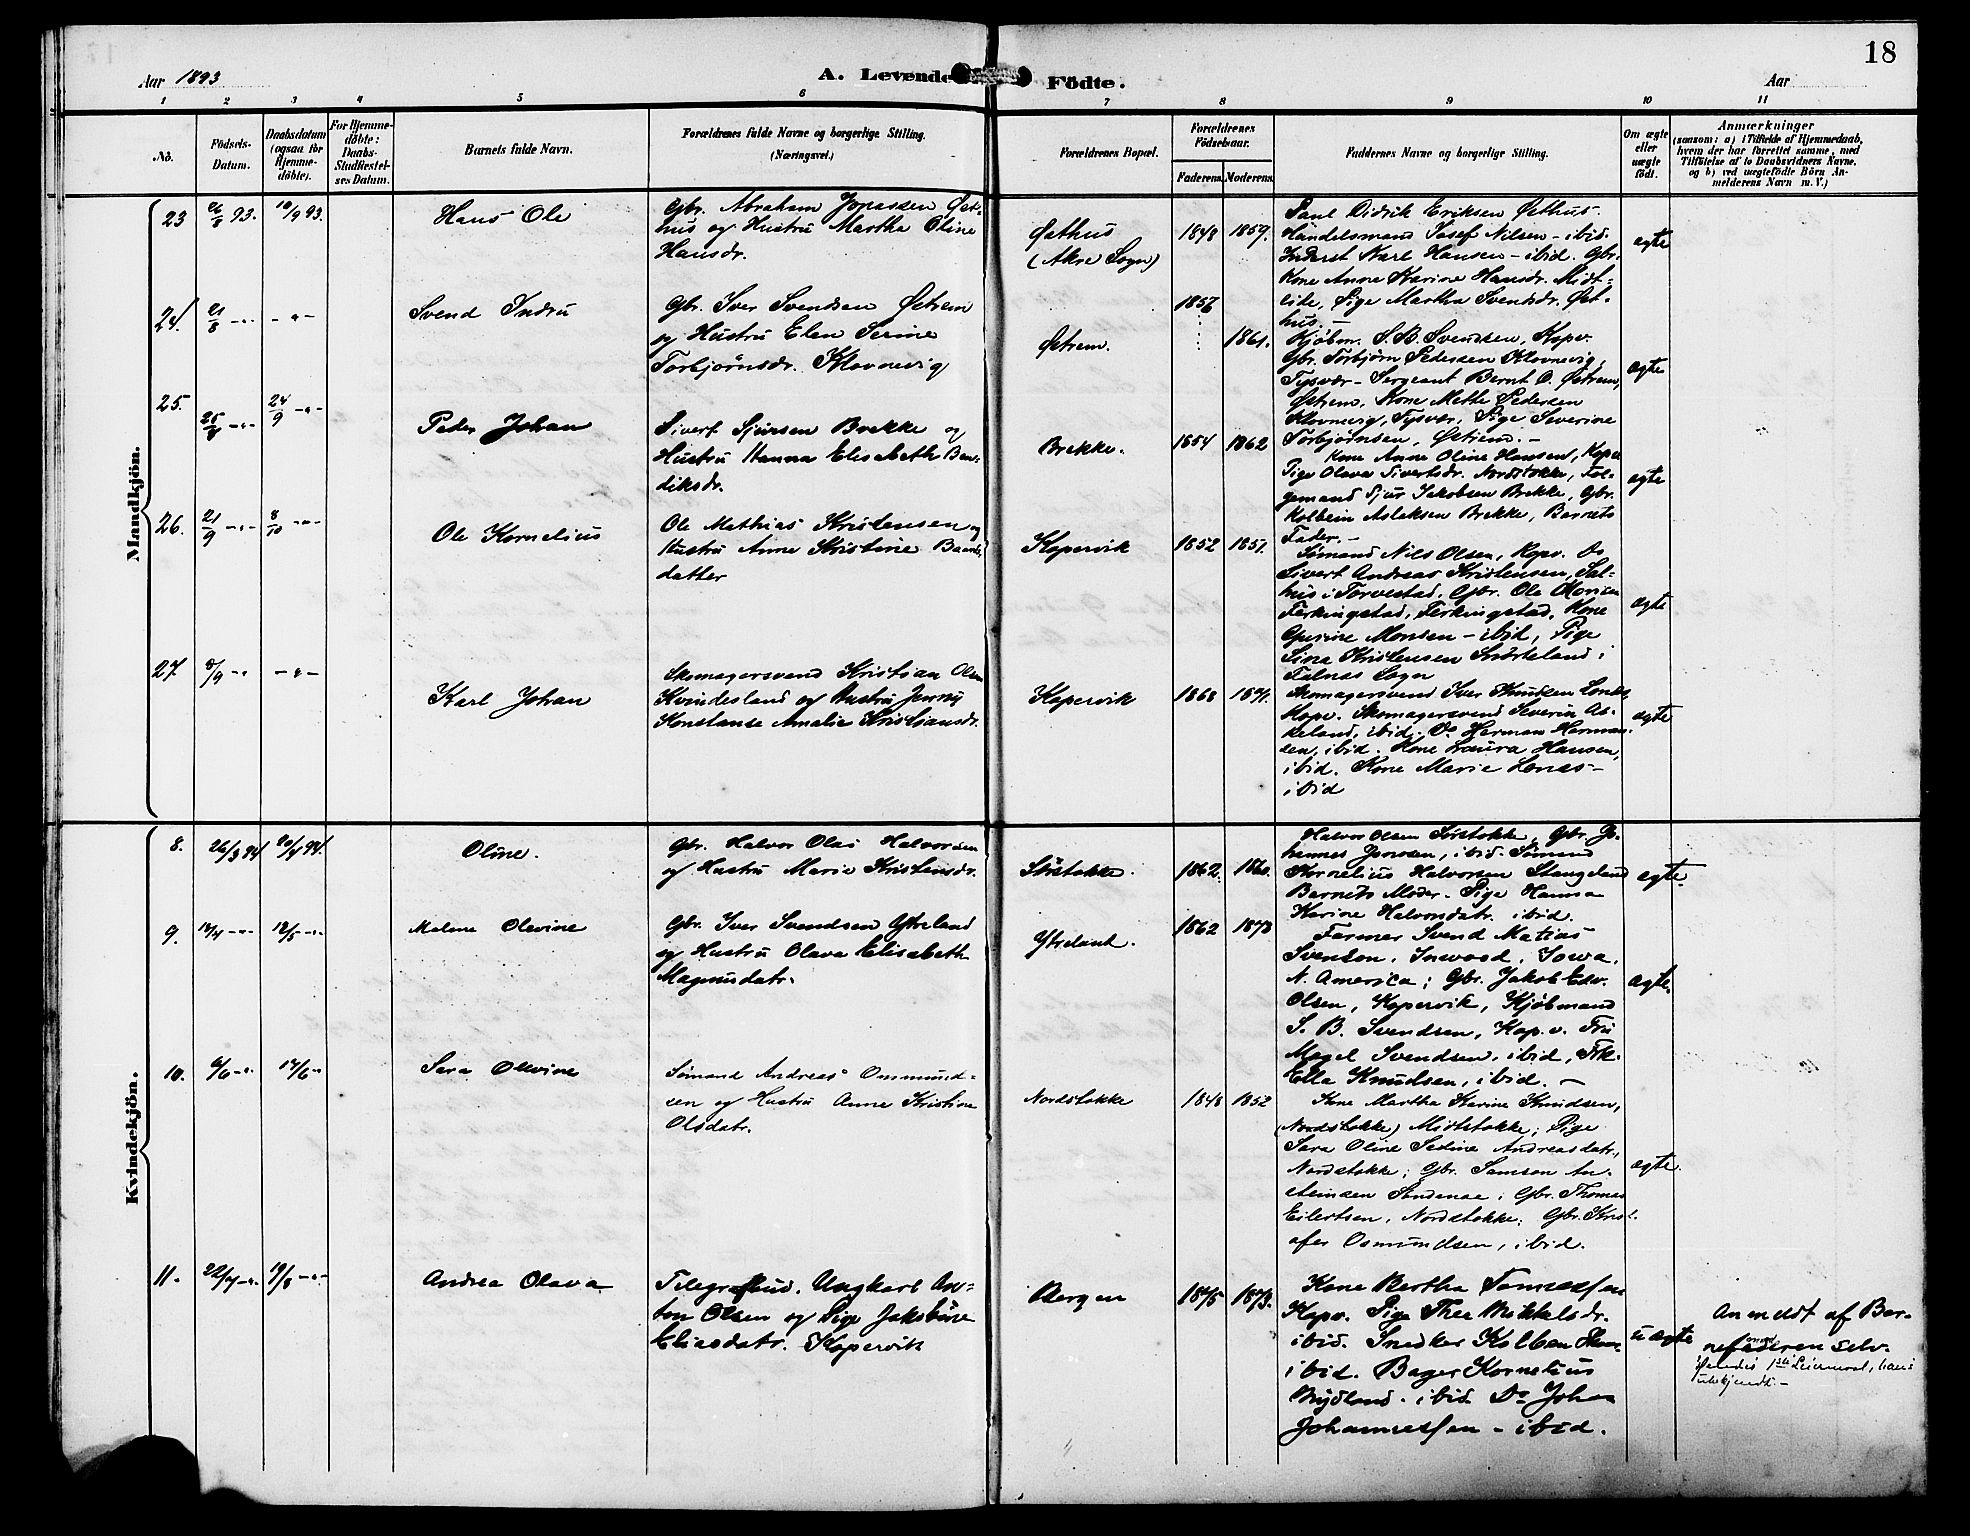 18
Aar 1893
A. Levende Födte.
Aar
1 2 3 4 5 6 7 8 9 10 11
No.
Födsels-Datum.
Daabsdatum (ogsaa for Hjemme-döbte).
For Hjemme-döbte: Daabs-Stadfæstel-ses Datum.
Barnets fulde Navn.
Forældrenes fulde Navne og borgerlige Stilling. (Næringsvei.)
Forældrenes Bopæl.
Forældrenes Födselsaar.
Faderens. Moderens.
Faddernes Navne og borgerlige Stilling.
Om ægte eller uægte födt.
Anmærkninger
(saasom: a) i Tilfælde af Hjemmedaab,
hvem der har forrettet samme, med
Tilföielse af to Daabsvidners Navne,
og b) ved uægtefödte Börn An-
melderens Navn m. V.)
Mandkjön.
23 26/8 93. 10/9 93. Hans Ole
Gbr. Abraham Jonassen Øst-
hus og Hustru Martha Oline
Hansdr.
Østhus
(Akre Sogn)
1848 1859.
Paul Didrik Eriksen Østhus.
Handelsmand Josef Nilsen - ibid.
Inderst Karl Hansen - ibid. Gbr.
Kone Anne Karine Hansdr. Midt-
lide, Pige Martha Svendsdr. Øst-
hus. -
ægte
24. 21/8 -"- -"- Svend Indru
Gbr. Iver Svendsen Østrem
og Hustru Elen Serine
Torbjørnsdr. Klovnevig
Østrem.
1857 1861.
Kjøbm. S. B. Svendsen, Kopv.
Gbr. Torbjørn Pedersen Klovnevig,
Tysvær - Sergeant Bernt O. Østrem,
Østrem, Kone Mette Pedersen
Klovnevig, Tysvær, Pige Severine
Torbjørnsen, Østrem. -
ægte
25. 25/8 -"- 24/9 -"- Peder Johan
Sivert Sjursen Brekke og
Hustru Hanna Elisabeth Ben-
diksdr.
Brekke.
1854 1862
Kone Anne Oline Hansen, Kopv
Pige Olava Sivertsdr. Nordstokke, Føl-
gemand Sjur Jakobsen Brekke, Gbr.
Kolbein Aslaksen Brekke, Barnets
Fader. -
ægte
26. 21/9 -"- 8/10 -"- Ole Kornelius
Ole Mathias Kristensen og
Hustru Anne Kristine
datter
Kopervik
1852 1851.
Sømand Nils Olsen, Kopv. Do
Sivert Andreas Kristensen, Sal-
hus i Torvestad. Gbr. Ole
Ferkingstad, Ferkingstad, Kone
Monsen - ibid, Pige
Sina Kristensen Snørteland i
Falnes Sogn
ægte
27. 8/9 -"- -"- Karl Johan
Skomagersvend Kristian Olsen
Kvindesland og Hustru Jenny
Konstanse Amalie Kristiansdr.
Kopervik
1868 1871.
Skomagersvend Iver Knudsen Lones
Kopv. Skomagersvend Severin As-
keland, ibid. Do Herman Herman-
sen, ibid. Kone Laura Hansen,
ibid. Kone Marie Lones -
ibid
ægte
Kvindekjön.
8. 26/3 94 Oline.
Gbr. Halvor Olai Halvorsen
og Hustru Marie Kristensdr.
Sørstokke.
1862. 1860.
Halvor Olsen Sørstokke, Gbr. Jo-
hannes Jonsen, ibid. Sømand
Kornelius Halvorsen Stangeland
Barnets Moder. Pige Hanna
Karine Halvorsdatr. ibid.
ægte.
9. 14/4 -"- 12/5 -"- Malene Olevine
Gbr. Iver Svendsen Ytreland
og Hustru Olava Elisabeth
Magnusdatr.
Ytreland.
1862 1873
Farmer Svend Matias
Svenson, Inwood, Iowa.
N. America; Gbr. Jakob Edv.
Olsen, Kopervik, Kjøbmand
S. B. Svendsen, Kop.v. Fru
Magel Svendsen, ibid, Frk.
Ella Knudsen, ibid. -
ægte.
10. 6/6 -"- 17/6 -"- Sara Olevine
Sømand Andreas Ommund-
sen og Hustru Anne Kristine
Olsdatr.
Nordstokke
1848 1852
Kone Martha Karine Knudsen,
(Nordstokke) Midtstokke; Pige
Sara Oline Sedine Andreasdatr,
Nordstokke; Gbr. Samson An-
steinsen Søndenaa; Gbr. Thomas
Eilertsen, Nordstokke; Gbr. Krist-
afer Osmundsen, ibid.
ægte.
11. 22/7 -"- 19/8 -"- Andrea Olava
Telegrafbud. Ungkarl An-
ton Olsen og Pige Jakobine
Eliasdatr. Kopervik
Bergen
1875 1873.
Kone Bertha Tønnessen
Kopv. Pige Thea Mikkelsdr.
ibid. Snedker Kolben
ibid. Bager Kornelius
Nydland. ibid. Do Johan
Johannessen - ibid.
uægte
Anmeldt af Bar-
nefaderen selv.
1ste Leiermaal, hans
ubekjendt. -